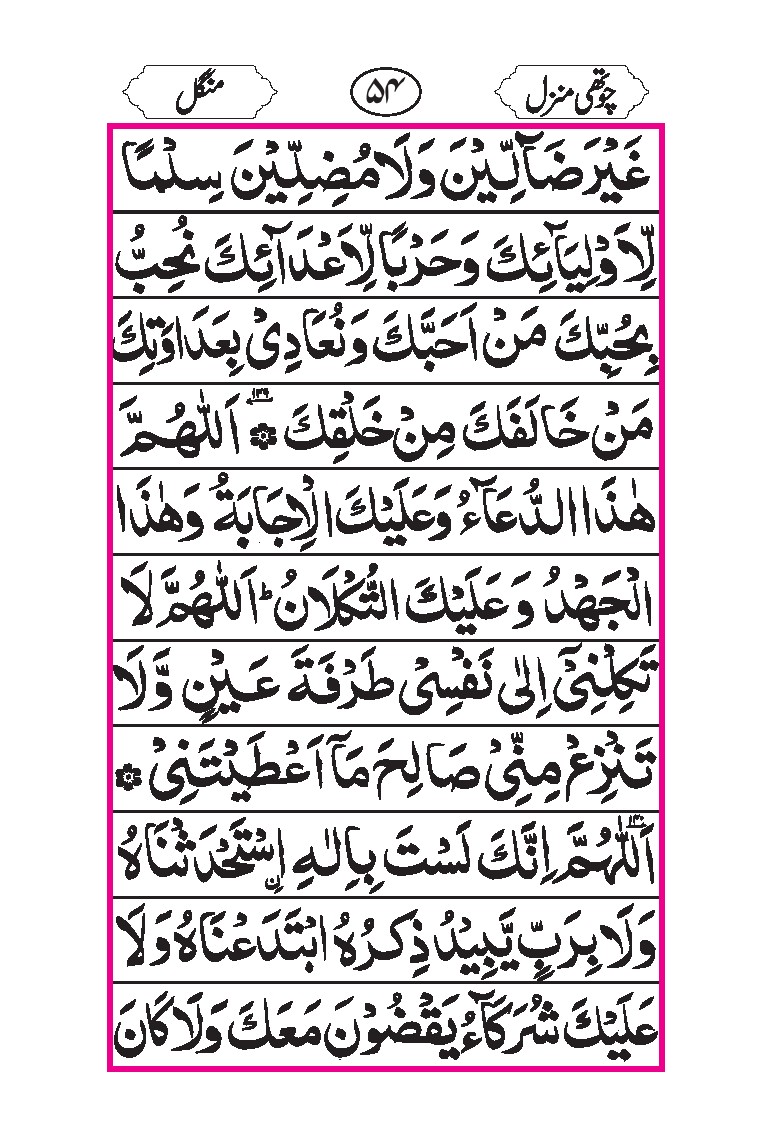 چوتھی منزل ۵۴ منگل
غَيْرَ ضَآلِّيْنَ وَلَا مُضِلِّيْنَ سِلْمًا
لِّاَوْلِيَآئِكَ وَحَرْبًا لِّاَعْدَآئِكَ نُحِبُّ
بِحُبِّكَ مَنْ اَحَبَّكَ وَنُعَادِيْ بِعَدَاوَتِكَ
مَنْ خَالَفَكَ مِنْ خَلْقِكَ ۞ ۱۳۹ اَللّٰهُمَّ
هٰذَا الدُّعَآءُ وَعَلَيْكَ الْاِجَابَةُ وَهٰذَا
الْجَهْدُ وَعَلَيْكَ التُّكْلَانُ ؕ اَللّٰهُمَّ لَا
تَكِلْنِيْٓ اِلٰى نَفْسِيْ طَرْفَةَ عَيْنٍ وَّلَا
تَنْزِعْ مِنِّيْ صَالِحَ مَآ اَعْطَيْتَنِيْ ۞
۱۴۰ اَللّٰهُمَّ اِنَّكَ لَسْتَ بِاِلٰهِ نِ اسْتَحْدَثْنَاهُ
وَلَا بِرَبٍّ يَّبِيْدُ ذِكْرُهُ ابْتَدَعْنَاهُ وَلَا
عَلَيْكَ شُرَكَآءُ يَقْضُوْنَ مَعَكَ وَلَا كَانَ